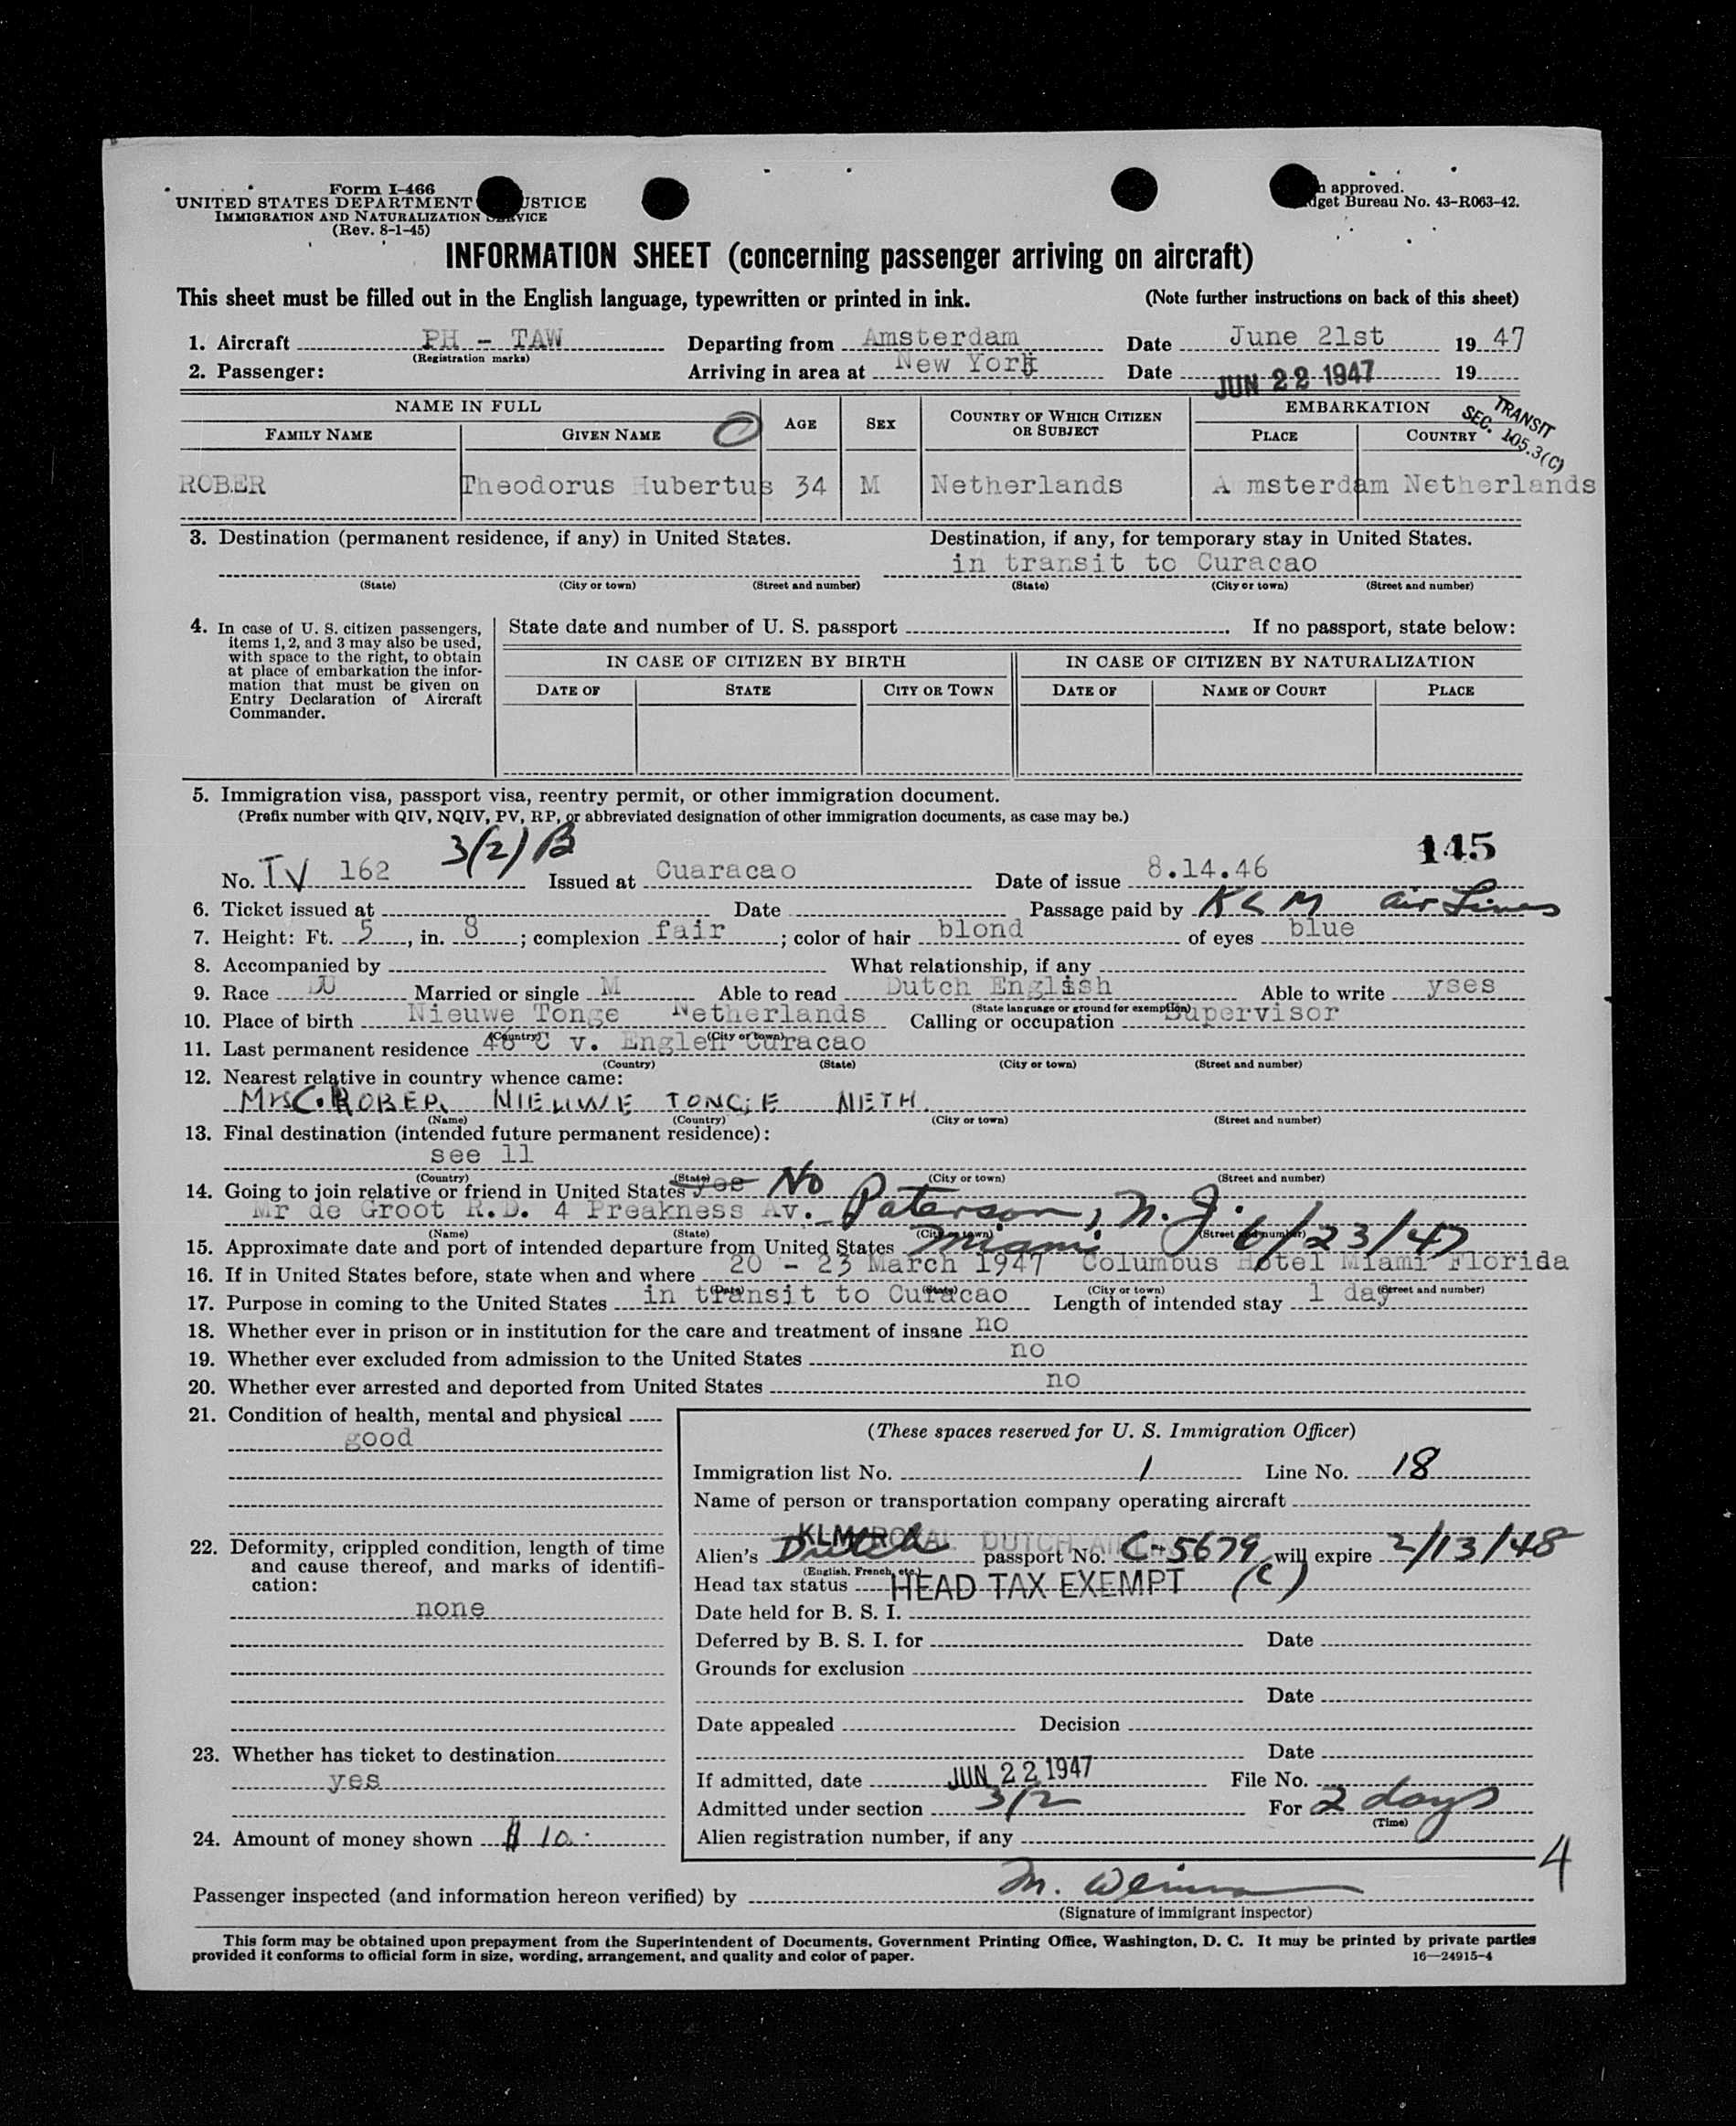 Form I-466
UNITED STATES DEPARTMENT USTICE
IMMIGRATION AND NATURALIZATION SERVICE
(Rev. 8-1-45)
n approved.
dget Bureau No. 43-R063-42.
INFORMATION SHEET (concerning passenger arriving on aircraft)
This sheet must be filled out in the English language, typewritten or printed in ink. (Note further instructions on back of this sheet)
1. Aircraft PH - TAW Departing from Amsterdam Date June 21st 19 47
(Registration marks)
2. Passenger: Arriving in area at New York Date JUN 22 1947 19
NAME IN FULL AGE SEX COUNTRY OF WHICH CITIZEN OR SUBJECT EMBARKATION
TRANSIT
SEC. 105.3(C)
FAMILY NAME GIVEN NAME PLACE COUNTRY
ROBER Theodorus Hubertus 34 M Netherlands A msterdam Netherlands
3. Destination (permanent residence, if any) in United States. Destination, if any, for temporary stay in United States.
in transit to Curacao
(State) (City or town) (Street and number) (State) (City or town) (Street and number)
4. In case of U. S. citizen passengers, items 1, 2, and 3 may also be used, with space to the right, to obtain at place of embarkation the information that must be given on Entry Declaration of Aircraft Commander.
State date and number of U. S. passport If no passport, state below:
IN CASE OF CITIZEN BY BIRTH IN CASE OF CITIZEN BY NATURALIZATION
DATE OF STATE CITY OR TOWN DATE OF NAME OF COURT PLACE
5. Immigration visa, passport visa, reentry permit, or other immigration document.
(Prefix number with QIV, NQIV, PV, RP, or abbreviated designation of other immigration documents, as case may be.)
3(2) B
145
No. TV 162 Issued at Cuaracao Date of issue 8.14.46
6. Ticket issued at Date Passage paid by KLM Air Lines
7. Height: Ft. 5, in. 8; complexion fair; color of hair blond of eyes blue
8. Accompanied by What relationship, if any
9. Race DU Married or single M Able to read Dutch English Able to write yses
(State language or ground for exemption)
10. Place of birth Nieuwe Tonge Netherlands Calling or occupation Supervisor
(Country) (City or town)
11. Last permanent residence 46 C v. Englen Curacao
(Country) (State) (City or town) (Street and number)
12. Nearest relative in country whence came:
Mrs C. ROBER, NIEUWE TONGE NETH.
(Name) (Country) (City or town) (Street and number)
13. Final destination (intended future permanent residence):
see 11
(Country) (State) (City or town) (Street and number)
14. Going to join relative or friend in United States yes No
Mr de Groot R.D. 4 Preakness Av. Paterson, N.J.
(Name) (State) (City or town) (Street and number)
15. Approximate date and port of intended departure from United States Miami 6/23/47
16. If in United States before, state when and where 20 - 23 March 1947 Columbus Hotel Miami Florida
(Date) (State) (City or town) (Street and number)
17. Purpose in coming to the United States in transit to Curacao Length of intended stay 1 day
18. Whether ever in prison or in institution for the care and treatment of insane no
19. Whether ever excluded from admission to the United States no
20. Whether ever arrested and deported from United States no
21. Condition of health, mental and physical
good
22. Deformity, crippled condition, length of time and cause thereof, and marks of identification:
none
23. Whether has ticket to destination
yes
24. Amount of money shown $ 10.
(These spaces reserved for U. S. Immigration Officer)
Immigration list No. 1 Line No. 18
Name of person or transportation company operating aircraft
KLM ROYAL DUTCH AIRLINES
Alien's Dutch passport No. C-5679 will expire 2/13/48
(English, French, etc.)
Head tax status HEAD TAX EXEMPT (c)
Date held for B. S. I.
Deferred by B. S. I. for Date
Grounds for exclusion
Date
Date appealed Decision
Date
If admitted, date JUN 22 1947 File No.
Admitted under section 3/2 For 2 days
(Time)
Alien registration number, if any
4
Passenger inspected (and information hereon verified) by M.
(Signature of immigrant inspector)
This form may be obtained upon prepayment from the Superintendent of Documents, Government Printing Office, Washington, D. C. It may be printed by private parties
provided it conforms to official form in size, wording, arrangement, and quality and color of paper. 16—24915-4